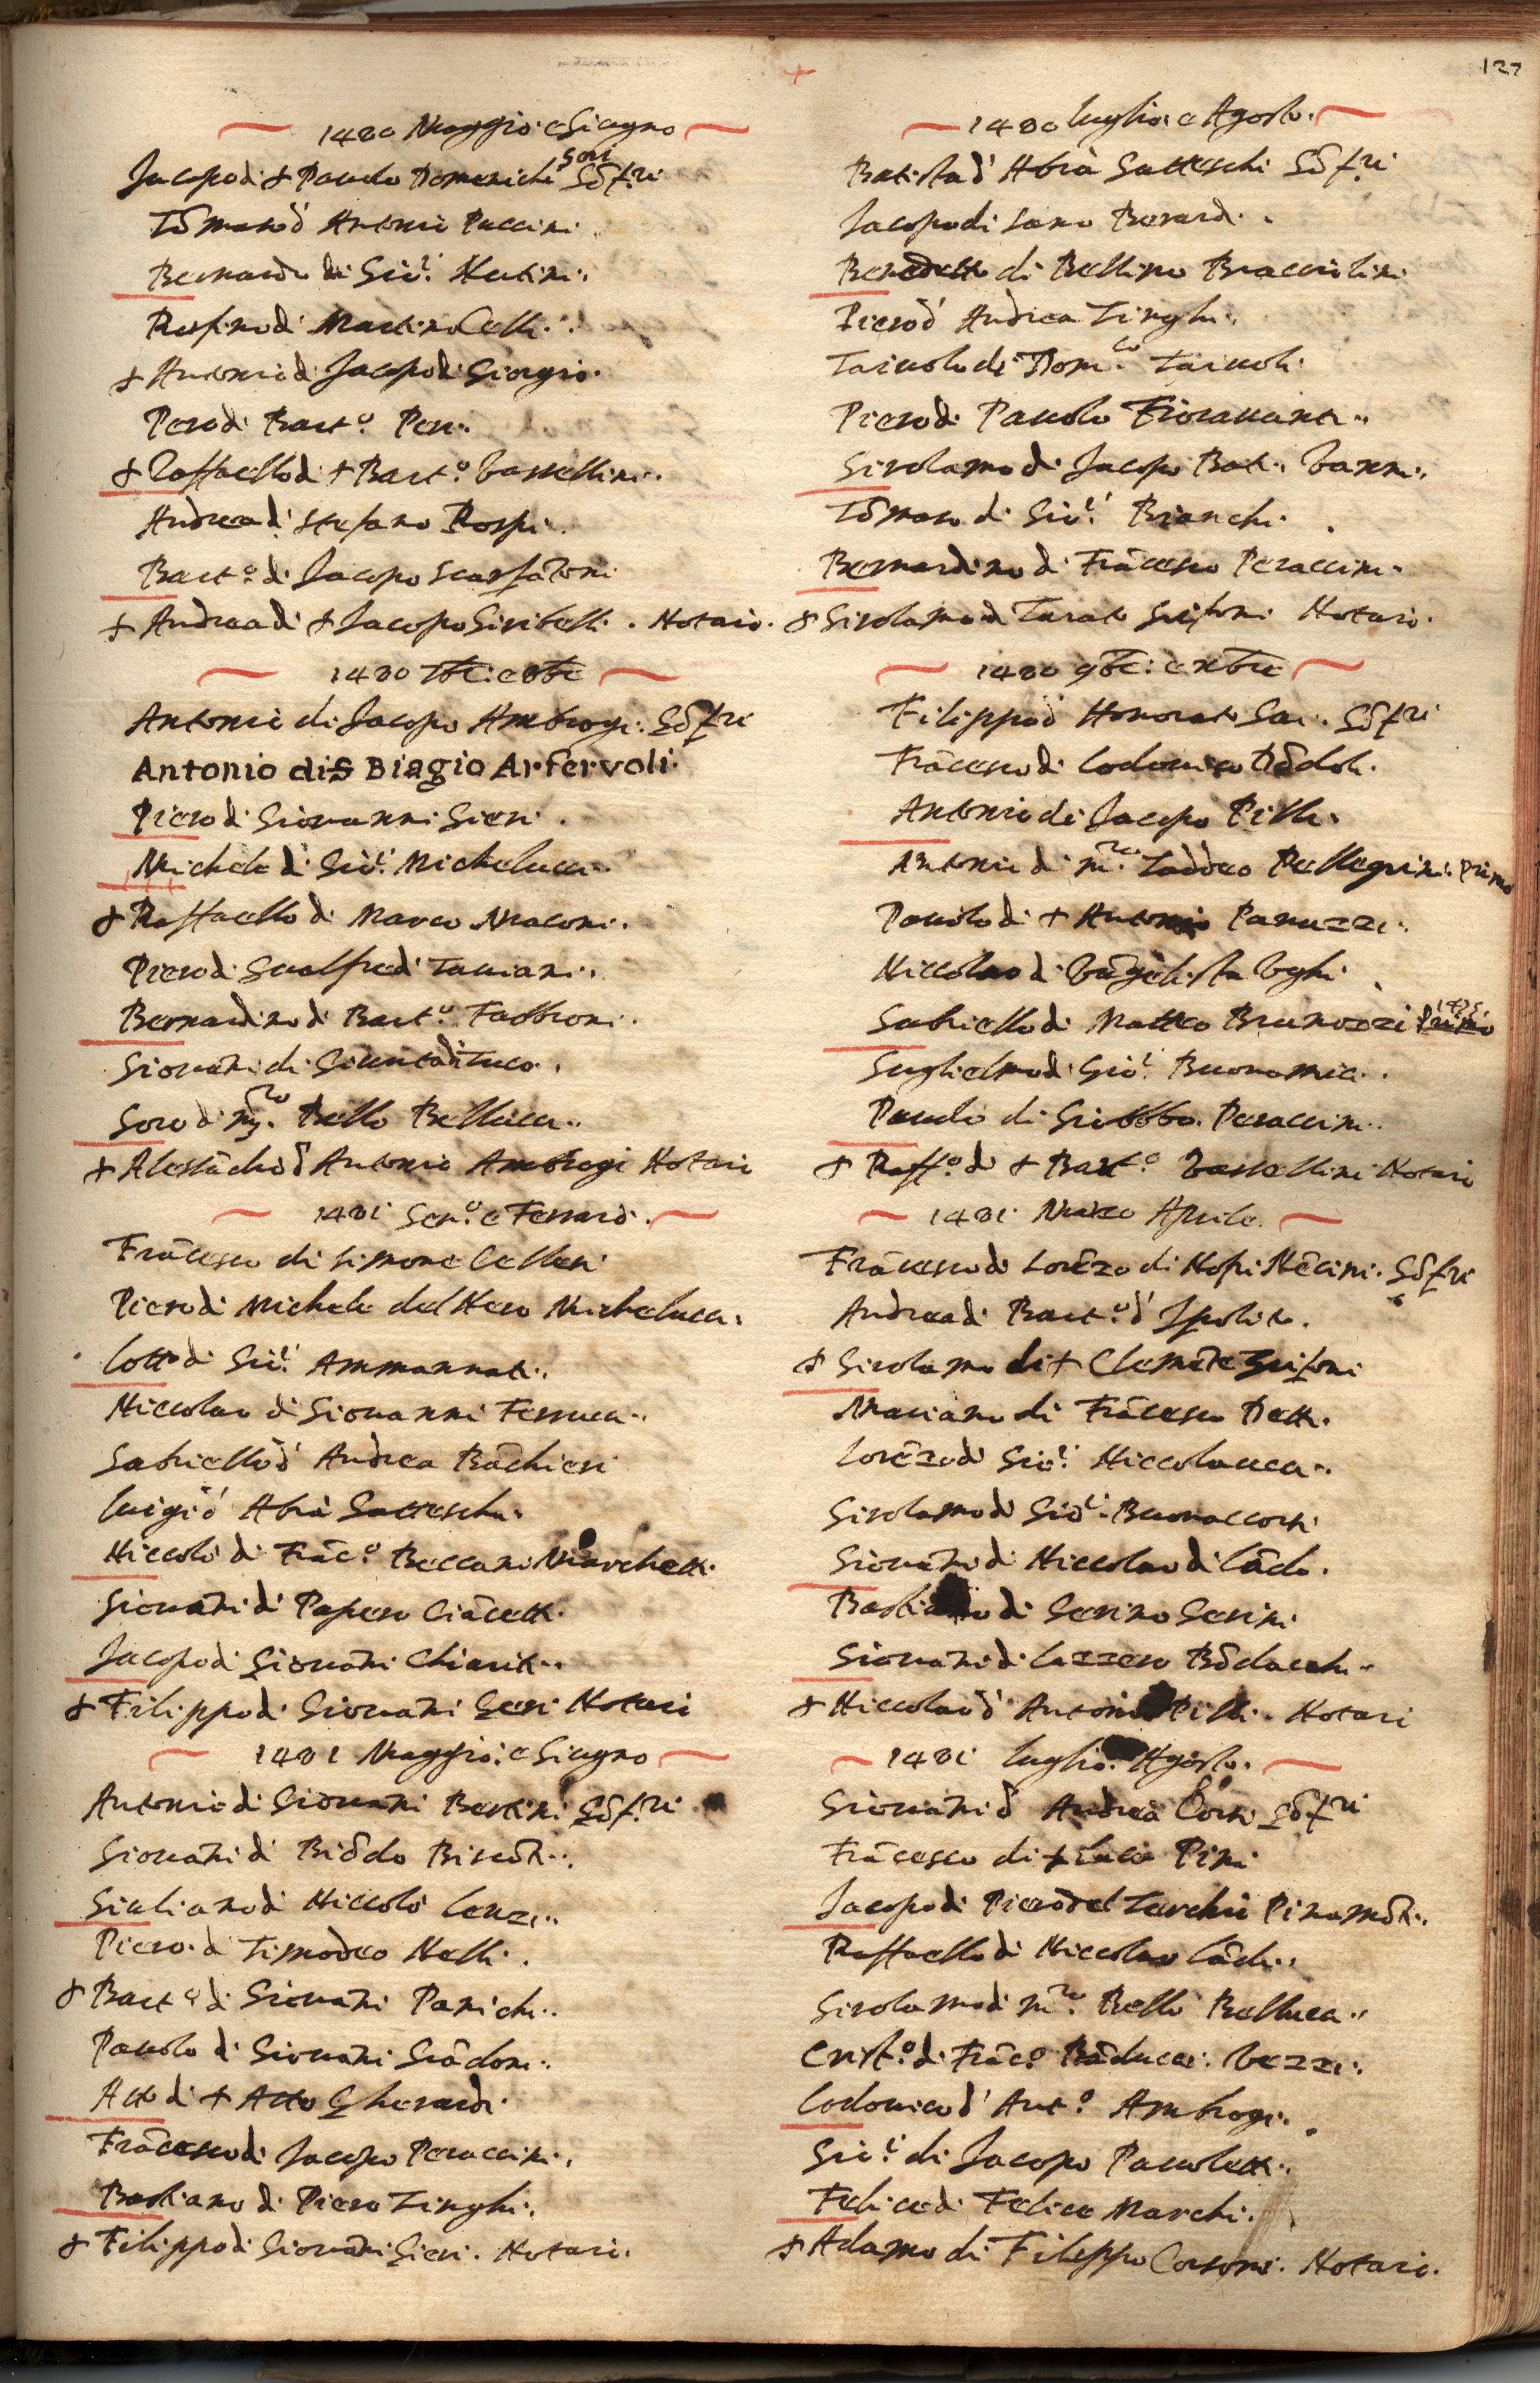 127
1480 Maggio: e Giugno
Jacopo di + Pauolo Domenichi Gōf.ri
Tōmaso d' Antonio Puccini.
Bernardo di Gio:i Nutini.
Rospino di Martino Celli.
+ Antonio di Jacopo di Giorgio.
Pero di Bart:o Peri.
+ Raffaello di + Bart:o Vassellini.
Andrea di Stefano Rospi.
Bart:o di Jacopo Scarfātoni
+ Andrea di + Jacopo Giribelli. Notaio.
1480 7bre: e 8bre
Antonio di Jacopo Ambrogi. Gōfri
Antonio di S Biagio Arfervoli.
Piero di Giovanni Gieri.
Michele di Gio:i Michelucci.
+ Raffaello di Marco Maconi.
Piero di Gualfredi Taviani.
Bernardino di Bart:o Fabbroni.
Giovāni di Giunta di Tuco.
Goro di m:ro Bello Bellucci.
+ Alessādro d' Antonio Ambrogi Notaio
1481 Gen:o e Ferraro.
Frācesco di Simone Cellesi
Piero di Michele del Nero Michelucci.
Lotto di Gio:i Ammannati.
Niccolao di Giovanni Ferrucci.
Gabriello d' Andrea Bāchieri
Luigi d' Abrā Gatteschi.
Niccolò di Frāc:o Beccano Marchetti.
Giovāni di Papero Ciācetti.
Jacopo di Giovāni Chiariti.
+ Filippo di Giovāni Geri Notaio
1481 Maggio: e Giugno
Antonio di Giovāni Bertini Gōf.ri
Giovāni di Biōdo Biscōti.
Giuliano di Niccolò Cenzi.
Piero di Timodeo Nelli.
+ Bart:o di Giovāni Panichi.
Pauolo di Giovāni Grādoni.
Atto di + Atto Gherardi.
Frācesco di Jacopo Peraccini.
Bastiano di Piero Tinghi.
+ Filippo di Giovāni Gieri. Notaio.
1480 Luglio: e Agosto.
Batista d' Abrā Gatteschi Gōf.ri
Jacopo di Lano Berardi.
Benedetto di Bellino Bracciolini
Piero d' Andrea Tinghi.
Taiuolo di Dom:co Taiuoli
Piero di Pauolo Fiorauanti.
Girolamo di Jacopo Bati. Vanni.
Tōmaso di Gio:i Bianchi.
Bernardino di Frācesco Peraccini.
+ Girolamo di Turato Grifoni Notaio.
1480 9bre: e xbre
Filippo d' Honorato Gai. Gōfri
Frācesco di Lodouico Dōdoli.
Antonio di Jacopo Pilli.
Antonio di m:ro Taddeo Pellegrini. primo
Pauolo di + Antonio Panuzzi.
Niccolao di Vāgelista Vghi
Gabriello di Matteo Brunozzi
Guglielmo di Gio:i Buonamici.
Pauolo di Giobbo. Peraccini.
+ Raff:o di + Bart:o Vassellini Notaio
1481 Marzo Aprile
Frācesco di Lorēzo di Nofri Nēcini. Gōfri
Andrea di Bart:o d' Ipolito.
+ Girolamo di + Clemēte Grifoni
Mariano di Frācesco Detti.
Lorēzo di Gio:i Niccolaucci.
Girolamo di Gio:i Buonaccorsi
Giovāni di Niccolao di Lādo.
Bastiano di Gerino Gerini
Giovāni di Lazzero Bōdacchi.
+ Niccolao d' Antonio Pilli. Notaio
1481 Luglio: Agosto.
Giovāni d' Andrea Corsi Gōfri
Frācesco di + Luca Pini
Jacopo di Piero del Zucchi Pinamōti.
Raffaello di Niccolao Lādi.
Girolamo di m:ro Bello Bellucci.
Crist:o di Frāc:o Bāducci. Vezzi.
Lodouico d' Ant:o Ambrogi.
Gio:i di Jacopo Pauoletti.
Felice di Felice Marchi.
+ Adamo di Filippo Corsoni. Notaio.